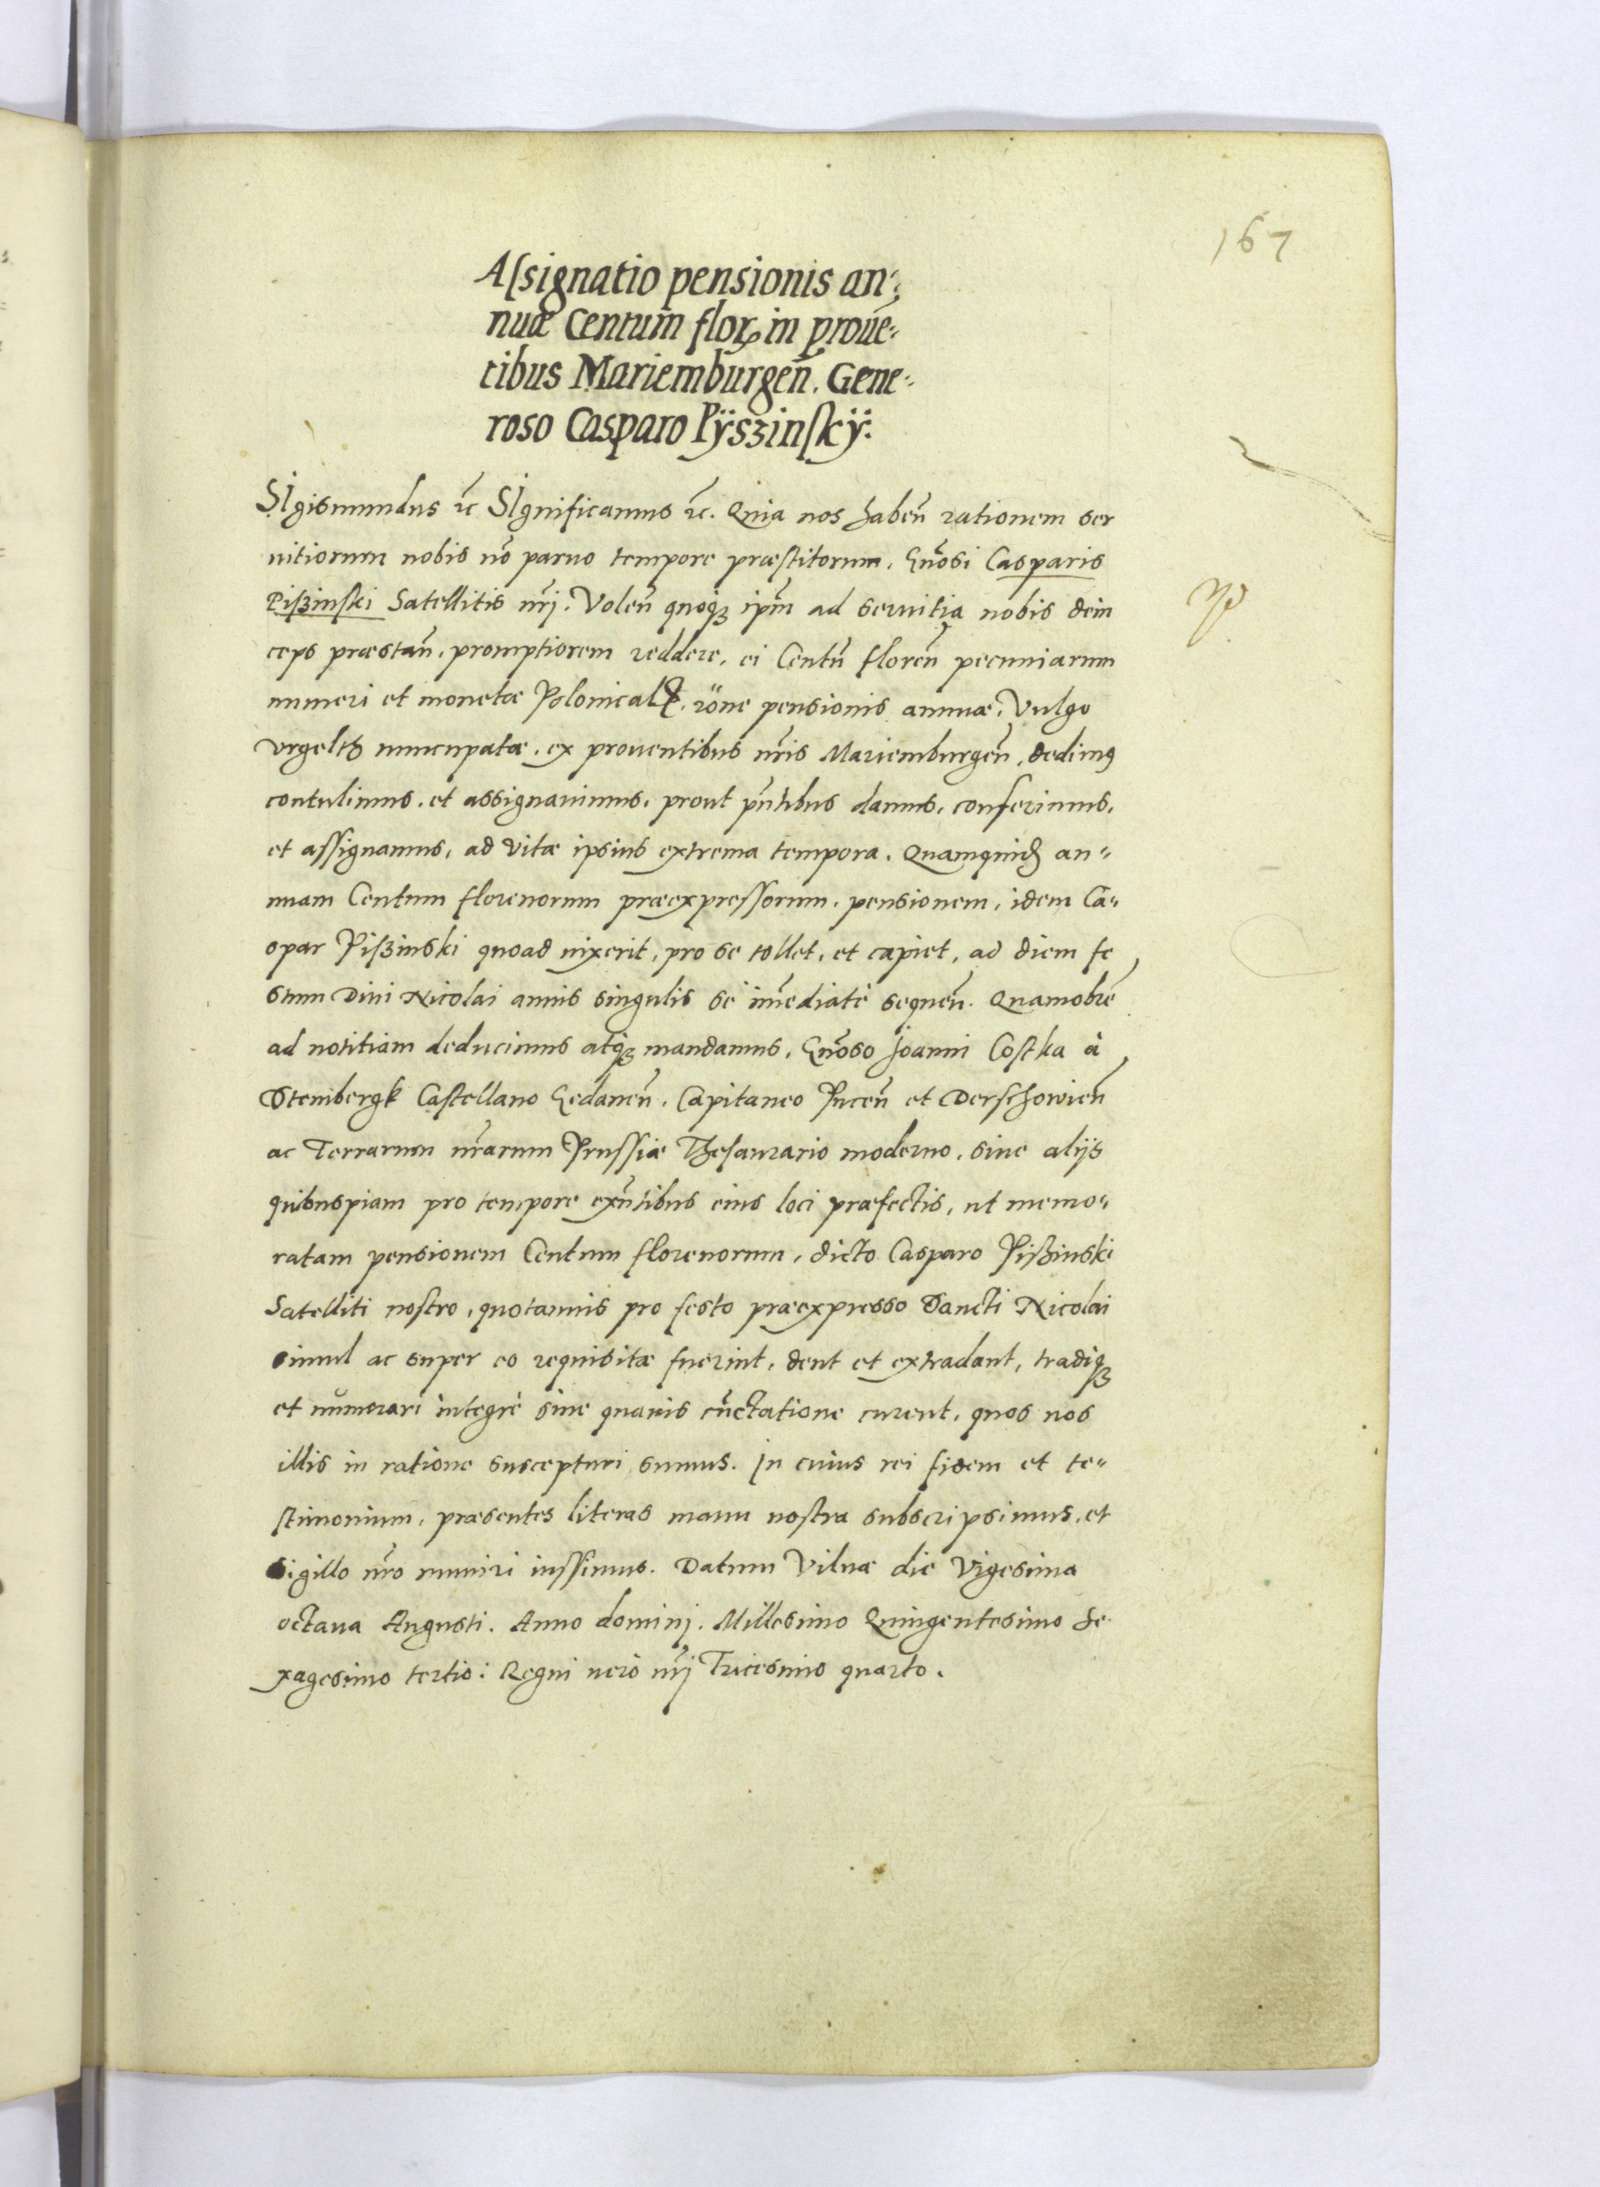 167
Assignatio pensionis an-
nuæ Centum floꝝ in prouē-
tibus Mariemburgeñ. Gene-
roso Casparo Pÿszinskÿ.
SIgismundus ꝛc SIgnificamus ꝛc. Quia nos habeñ rationem ser
uitiorum nobis nō paruo tempore præstitorum, Gñosi Casparis
Piszinski Satellitis nr̄i. Voleñ quoqꝫ ip̄m ad seruitia nobis dein
ceps præstañ, promptiorem reddere, ei Centū floreñ pecuniarum
numeri et monetæ Polonicalꝭ, rōne pensionis annuæ, Vulgo
vrgelth nuncupatæ, ex prouentibus nr̄is Mariemburgeñ, dedimꝰ
contulimus, et assignauimus, prout pñtibus damus, conferimus,
et assignamus, ad vitæ ipsius extrema tempora. Quamquid an-
nuam Centum florenorum præexpressorum, pensionem, idem Ca-
spar Piszinski quoad uixerit, pro se tollet, et capiet, ad diem fe
stum Diui Nicolai annis singulis se im̄ediatè sequeñ. Quamobrē
ad notitiam deducimus atqꝫ mandamus, Gñoso Joanni Costka à
Stembergk Castellano Gedaneñ, Capitaneo Puceñ et Derschowieñ
ac Terrarum nr̄arum Prussiæ Thesaurario moderno, siue alijs
quibuspiam pro tempore exñtibus eius loci præfectis, ut memo-
ratam pensionem Centum florenorum, dicto Casparo Piszinski
Satelliti nostro, quotannis pro festo præexpresso Sancti Nicolai
simul ac super eo requisitæ fuerint, dent et extradant, tradiqꝫ
et numerari integrè sine quauis cūctatione curent, quos nos
illis in ratione suscepturi sumus. In cuius rei fidem et te-
stimonium, præsentes literas manu nostra subscripsimus, et
sigillo nr̄o muniri iussimus. Datum Vilnæ die Vigesima
octaua Augusti. Anno dominj. Millesimo Quingentesimo Se
xagesimo tertio: Regni uerò nr̄j Tricesimo quarto.